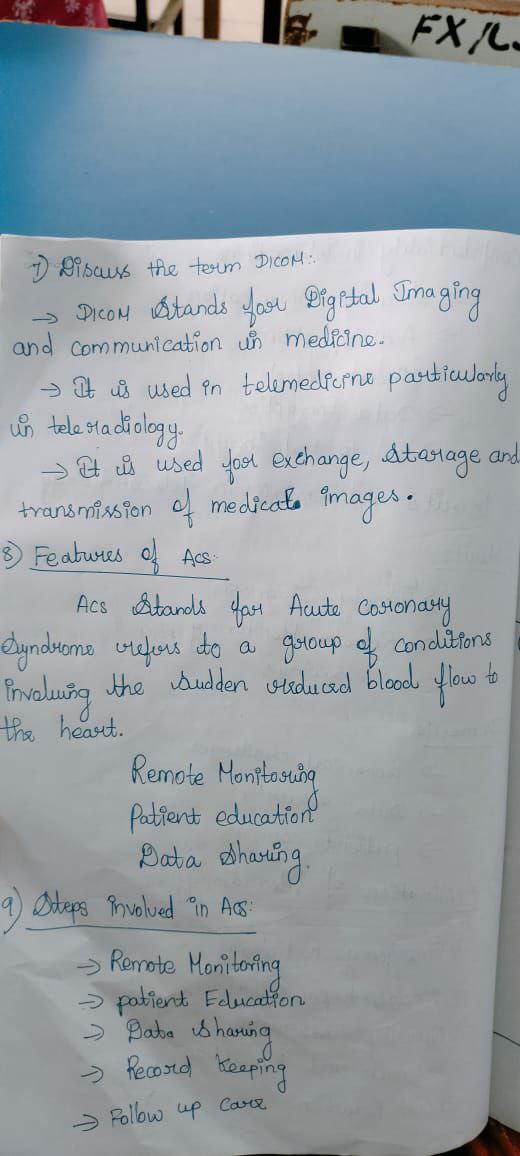 FX/L
7) Discuss the term DICOM:.
→ DICOM Stands for Digital Imaging
and communication in medicine.
→ It is used in telemedicine particularly
in teleradiology.
→ It is used for exchange, storage and
transmission of medical images.
8) Features of ACS:
ACS Stands for Acute coronary
Syndrome refers to a group of conditions
involving the sudden reduced blood flow to
the heart.
Remote Monitoring
Patient education
Data sharing.
9) Steps involved in ACS:
→ Remote Monitoring
→ patient Education
→ Data sharing
→ Record keeping
→ Follow up care